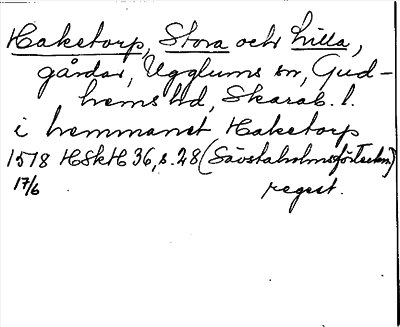 Haketorp, Stora och Lilla,
gårdar, Ugglums sn, Gud-
hems hd, Skarab. l.
i hemmanet Haketorp
1578 HSkH 36, s. 28 (Sävstaholmsförteckn)
17/6 regest.